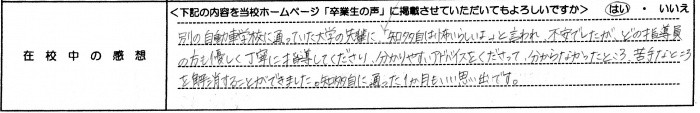 <下記の内容を当校ホームページ「卒業生の声」に掲載させていただいてもよろしいですか> はい ・ いいえ
在校中の感想
別の自動車学校に通っていた大学の先輩に、「知多自は怖いらしいよ」と言われ、不安でしたが、どの指導員
の方も優しく丁寧に指導してくださり、分かりやすいアドバイスをくださって、分からなかったところ、苦手なところ
を解消することができました。知多自に通った1か月もいい思い出です。